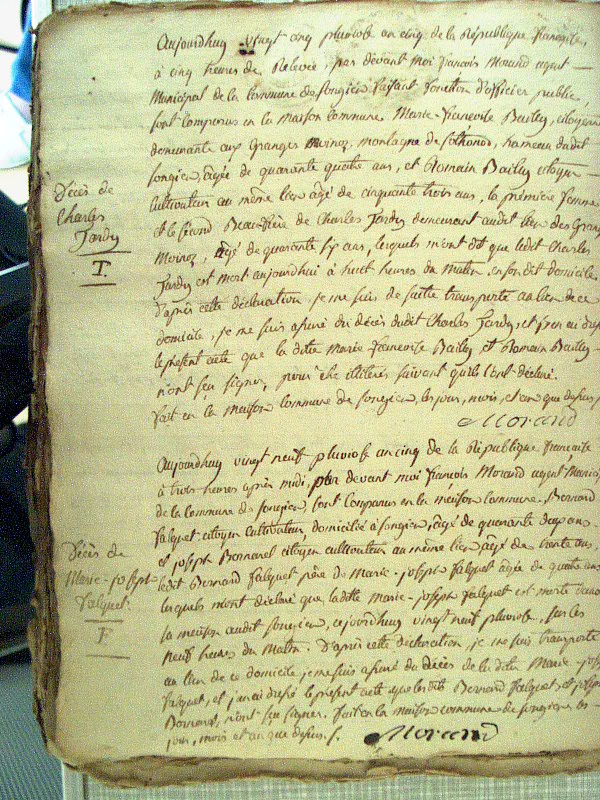 Aujourdhuy vingt cinq pluviose an cinq de la République française,
à cinq heures de Relevée, par devant Moi francois Morand agent
Municipal de la Commune de songieu faisant fonction d'officier public,
sont comparus en la maison commune Marie-francoise Bailly, citoyenne
demeurante aux Granges Moinoz, montagne de hameau dudit
songieu, agée de quarante quatre ans, et Romain Bailly citoyen
cultivateur au même lieu agé de cinquante trois ans, la première femme
et le second Beaufrère de Charles Jardy demeurant audit lieu des Granges
Moinoz, agé de quarante six ans, lesquels m'ont dit que ledit Charles
Jardy est mort aujourdhui à huit heures du matin, en son dit domicile
d'après cette déclaration, je me suis de suitte transporté au lieu de ce
domicile, je me suis assuré du décès dudit Charles Jardy, et j'en ai dressé
le présent acte que la ditte Marie francoise Bailly et Romain Bailly
n'ont seu signer, pour être illiterés suivant qu'ils l'ont déclaré.
fait en la maison commune de songieu, les jour, mois, et an que dessus
Morand
Décès de
Charles
Jardy
Aujourdhuy vingt neuf pluviose an cinq de la République francaise
à trois heures après midi, par devant moi francois Morand agent Municipal
de la commune de songieu, sont comparus en la maison commune, Bernard
falquet citoyen cultivateur domicilié à songieu, agé de quarante deux ans
et joseph Bernard citoyen cultivateur au même lieu agé de trente ans,
ledit Bernard falquet père de Marie-joseph falquet agée de quatre ans
lesquels m'ont déclaré que ladite marie-joseph falquet est morte dans
sa maison audit songieu, cejourdhuy vingt neuf pluviose, sur les
neuf heures du Matin. D'après cette déclaration, je me suis transporté
au lieu de ce domicile, je me suis assuré du décès de la dite Marie-joseph
falquet, et j'en ai dressé le présent acte que lesdits Bernard falquet, et joseph
Bernard, n'ont seu signer. fait en la maison commune de songieu les
jour, mois et an que dessus.
Morand
Décès de
Marie-joseph
falquet